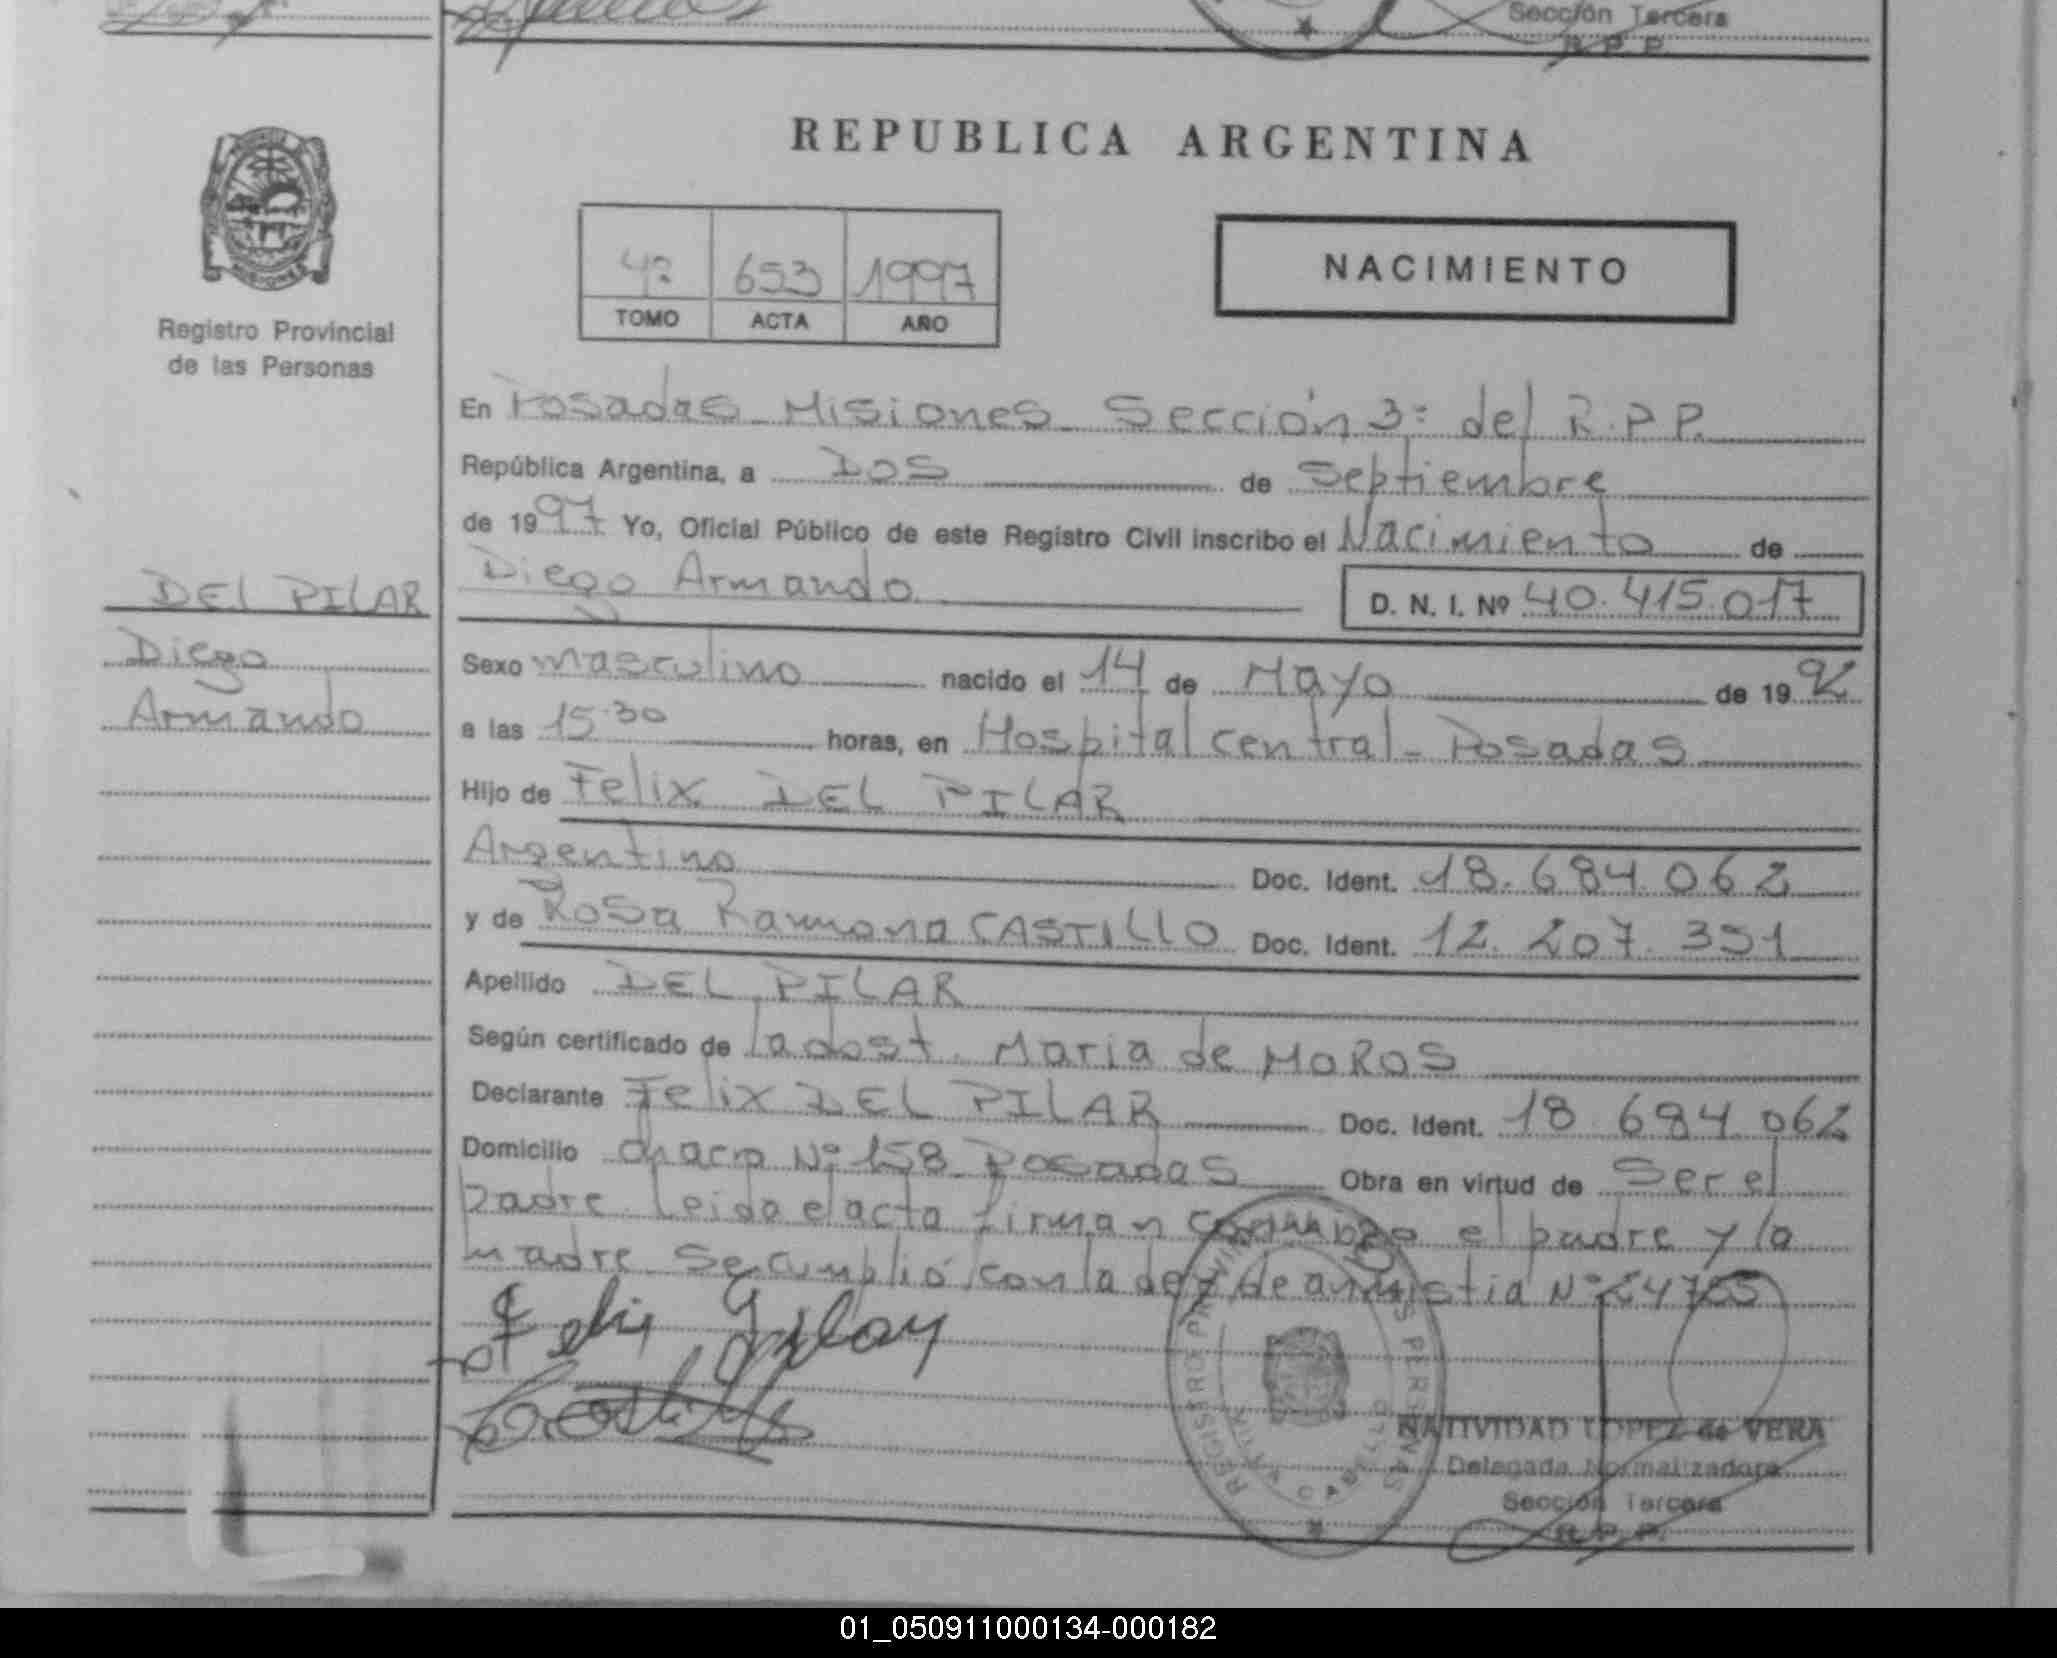 Sección Tercera
R. P. P.
REPUBLICA ARGENTINA
4º 653 1997
TOMO ACTA AÑO
NACIMIENTO
Registro Provincial
de las Personas
En Posadas Misiones Sección 3º del R.P.P.
República Argentina, a Dos de Septiembre
de 1997 Yo, Oficial Público de este Registro Civil inscribo el Nacimiento de
Diego Armando D. N. I. Nº 40.415.017
DEL PILAR
Diego
Armando
Sexo masculino nacido el 14 de Mayo de 19
a las 15.30 horas, en Hospital central - Posadas
Hijo de Felix DEL PILAR
Argentino Doc. Ident. 18.684.062
y de Rosa Ramona CASTILLO Doc. Ident. 12.207.351
Apellido DEL PILAR
Según certificado de la obst. Maria de MOROS
Declarante Felix DEL PILAR Doc. Ident. 18.684.062
Domicilio chacra Nº 158 Posadas Obra en virtud de Ser el
padre. Leida el acta firman el padre y la
madre se cumplió con la ley de amnistia Nº
REGISTRO PROVINCIAL DE LAS PERSONAS
NATIVIDAD LOPEZ de VERA
Delegada Normalizadora
Sección Tercera
R. P. P.
01_050911000134-000182